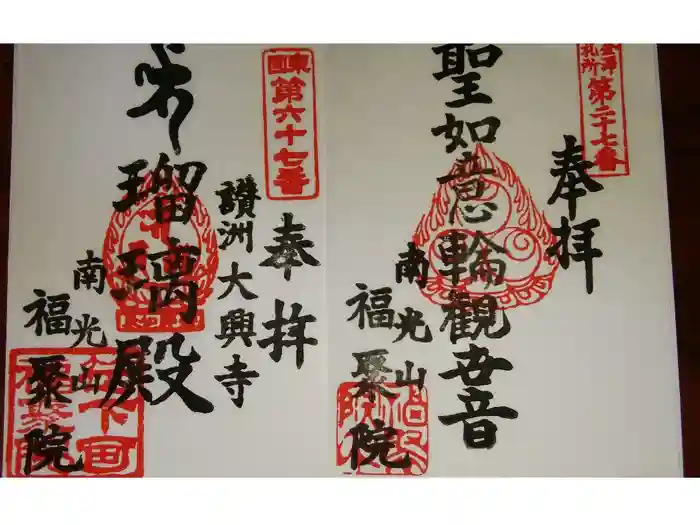 金澤
札所
第二十七番
奉拝
聖如意輪観世音
南光山
福聚院
東国
第六十七番
奉拝
讃洲大興寺
瑠璃殿
南光山
福聚院